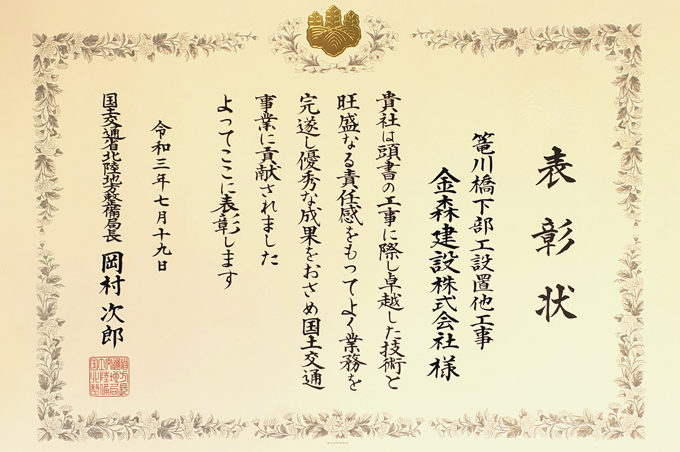 表彰状
篭川橋下部工設置他工事
金森建設株式会社様
貴社は頭書の工事に際し卓越した技術と
旺盛なる責任感をもってよく業務を
完遂し優秀な成果をおさめ国土交通
事業に貢献されました
よってここに表彰します
令和三年七月十九日
国土交通省北陸地方整備局長 岡村次郎